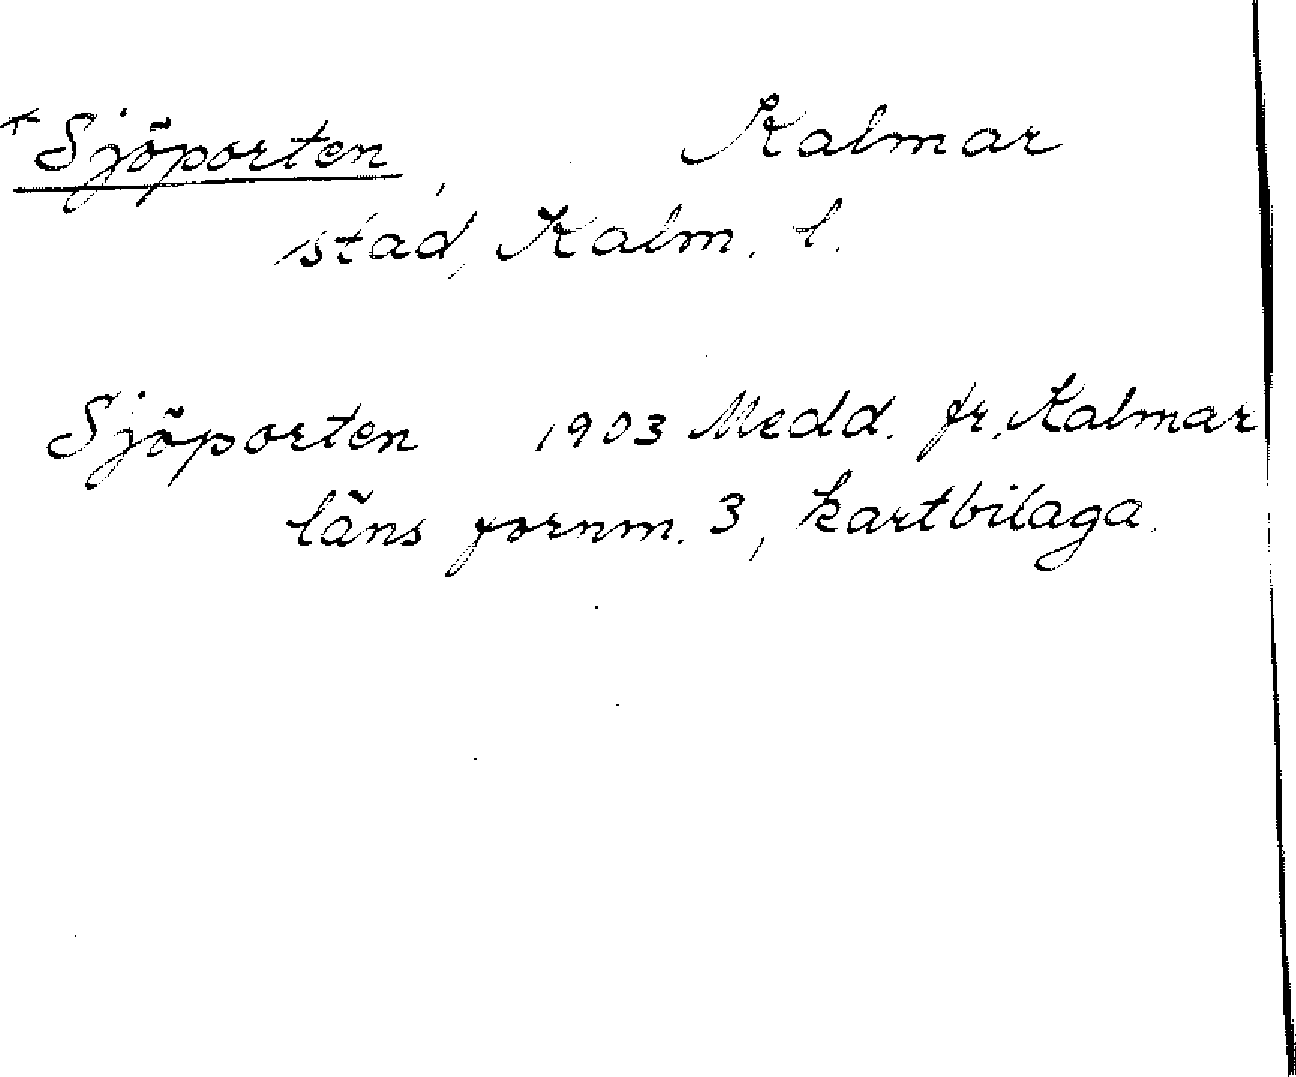 *Sjöporten, Kalmar
stad, Kalm. l.
Sjöporten 1903 Medd. fr. Kalmar
läns fornm. 3, kartbilaga.